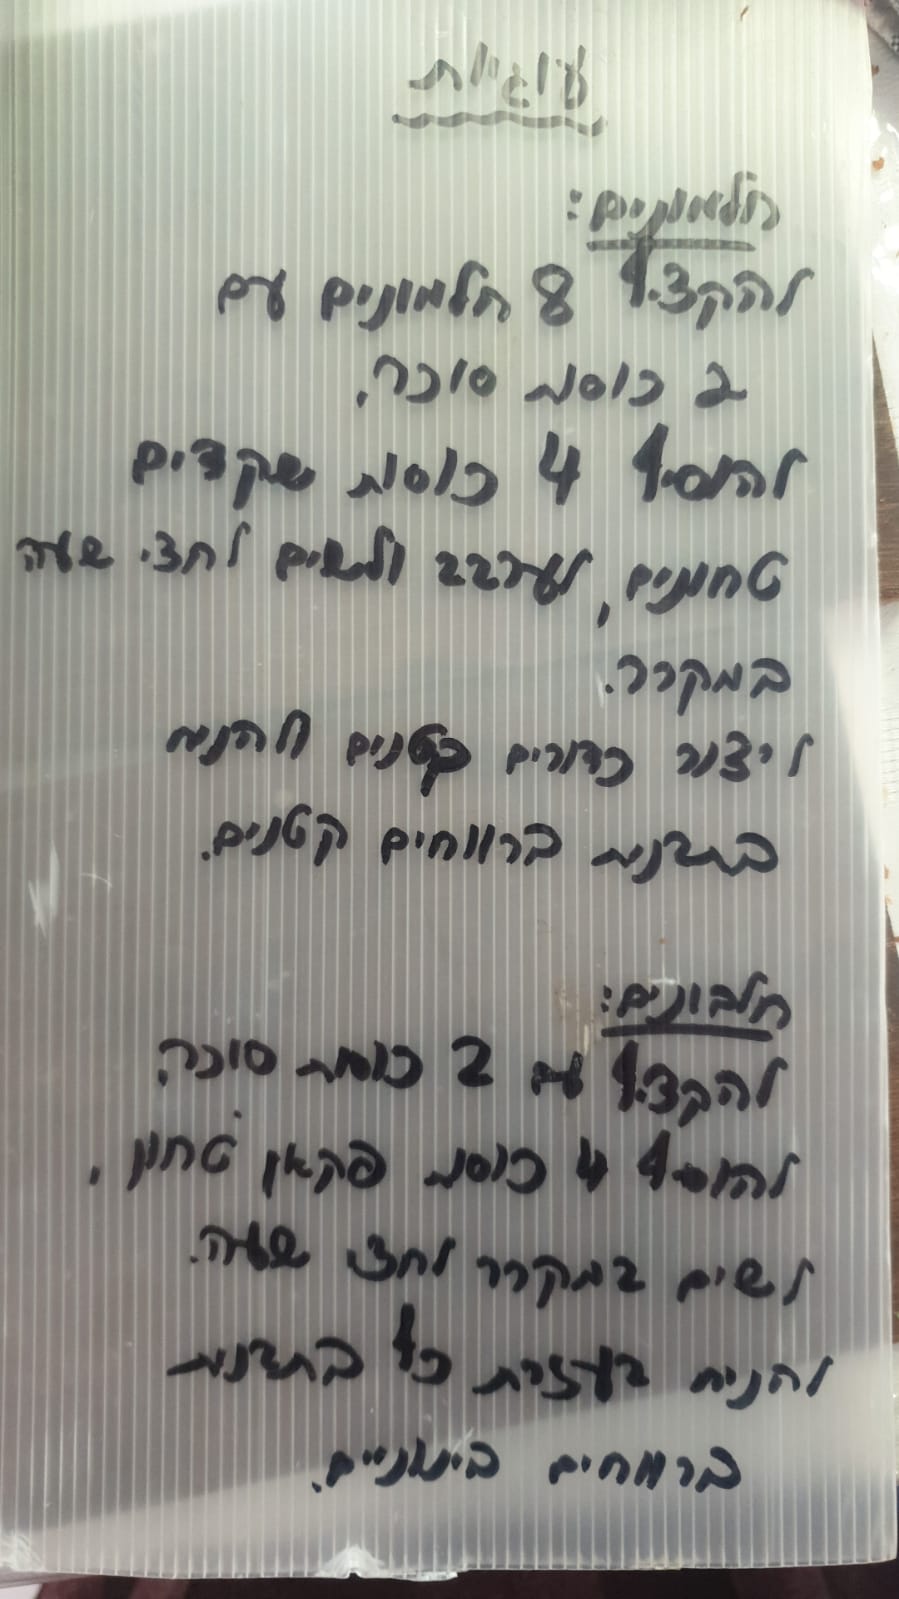 עוגיות
חלמונים:
להקציף 8 חלמונים עם
2 כוסות סוכר.
להוסיף 4 כוסות שקדים
טחונים, לערבב ולשים לחצי שעה
במקרר.
ליצור כדורים קטנים ולהניח
בתבנית ברווחים קטנים.
חלבונים:
להקציף עם 2 כוסות סוכר.
להוסיף 4 כוסות פקאן טחון,
לשים במקרר לחצי שעה.
להניח בעזרת כף בתבנית
ברווחים בינוניים.